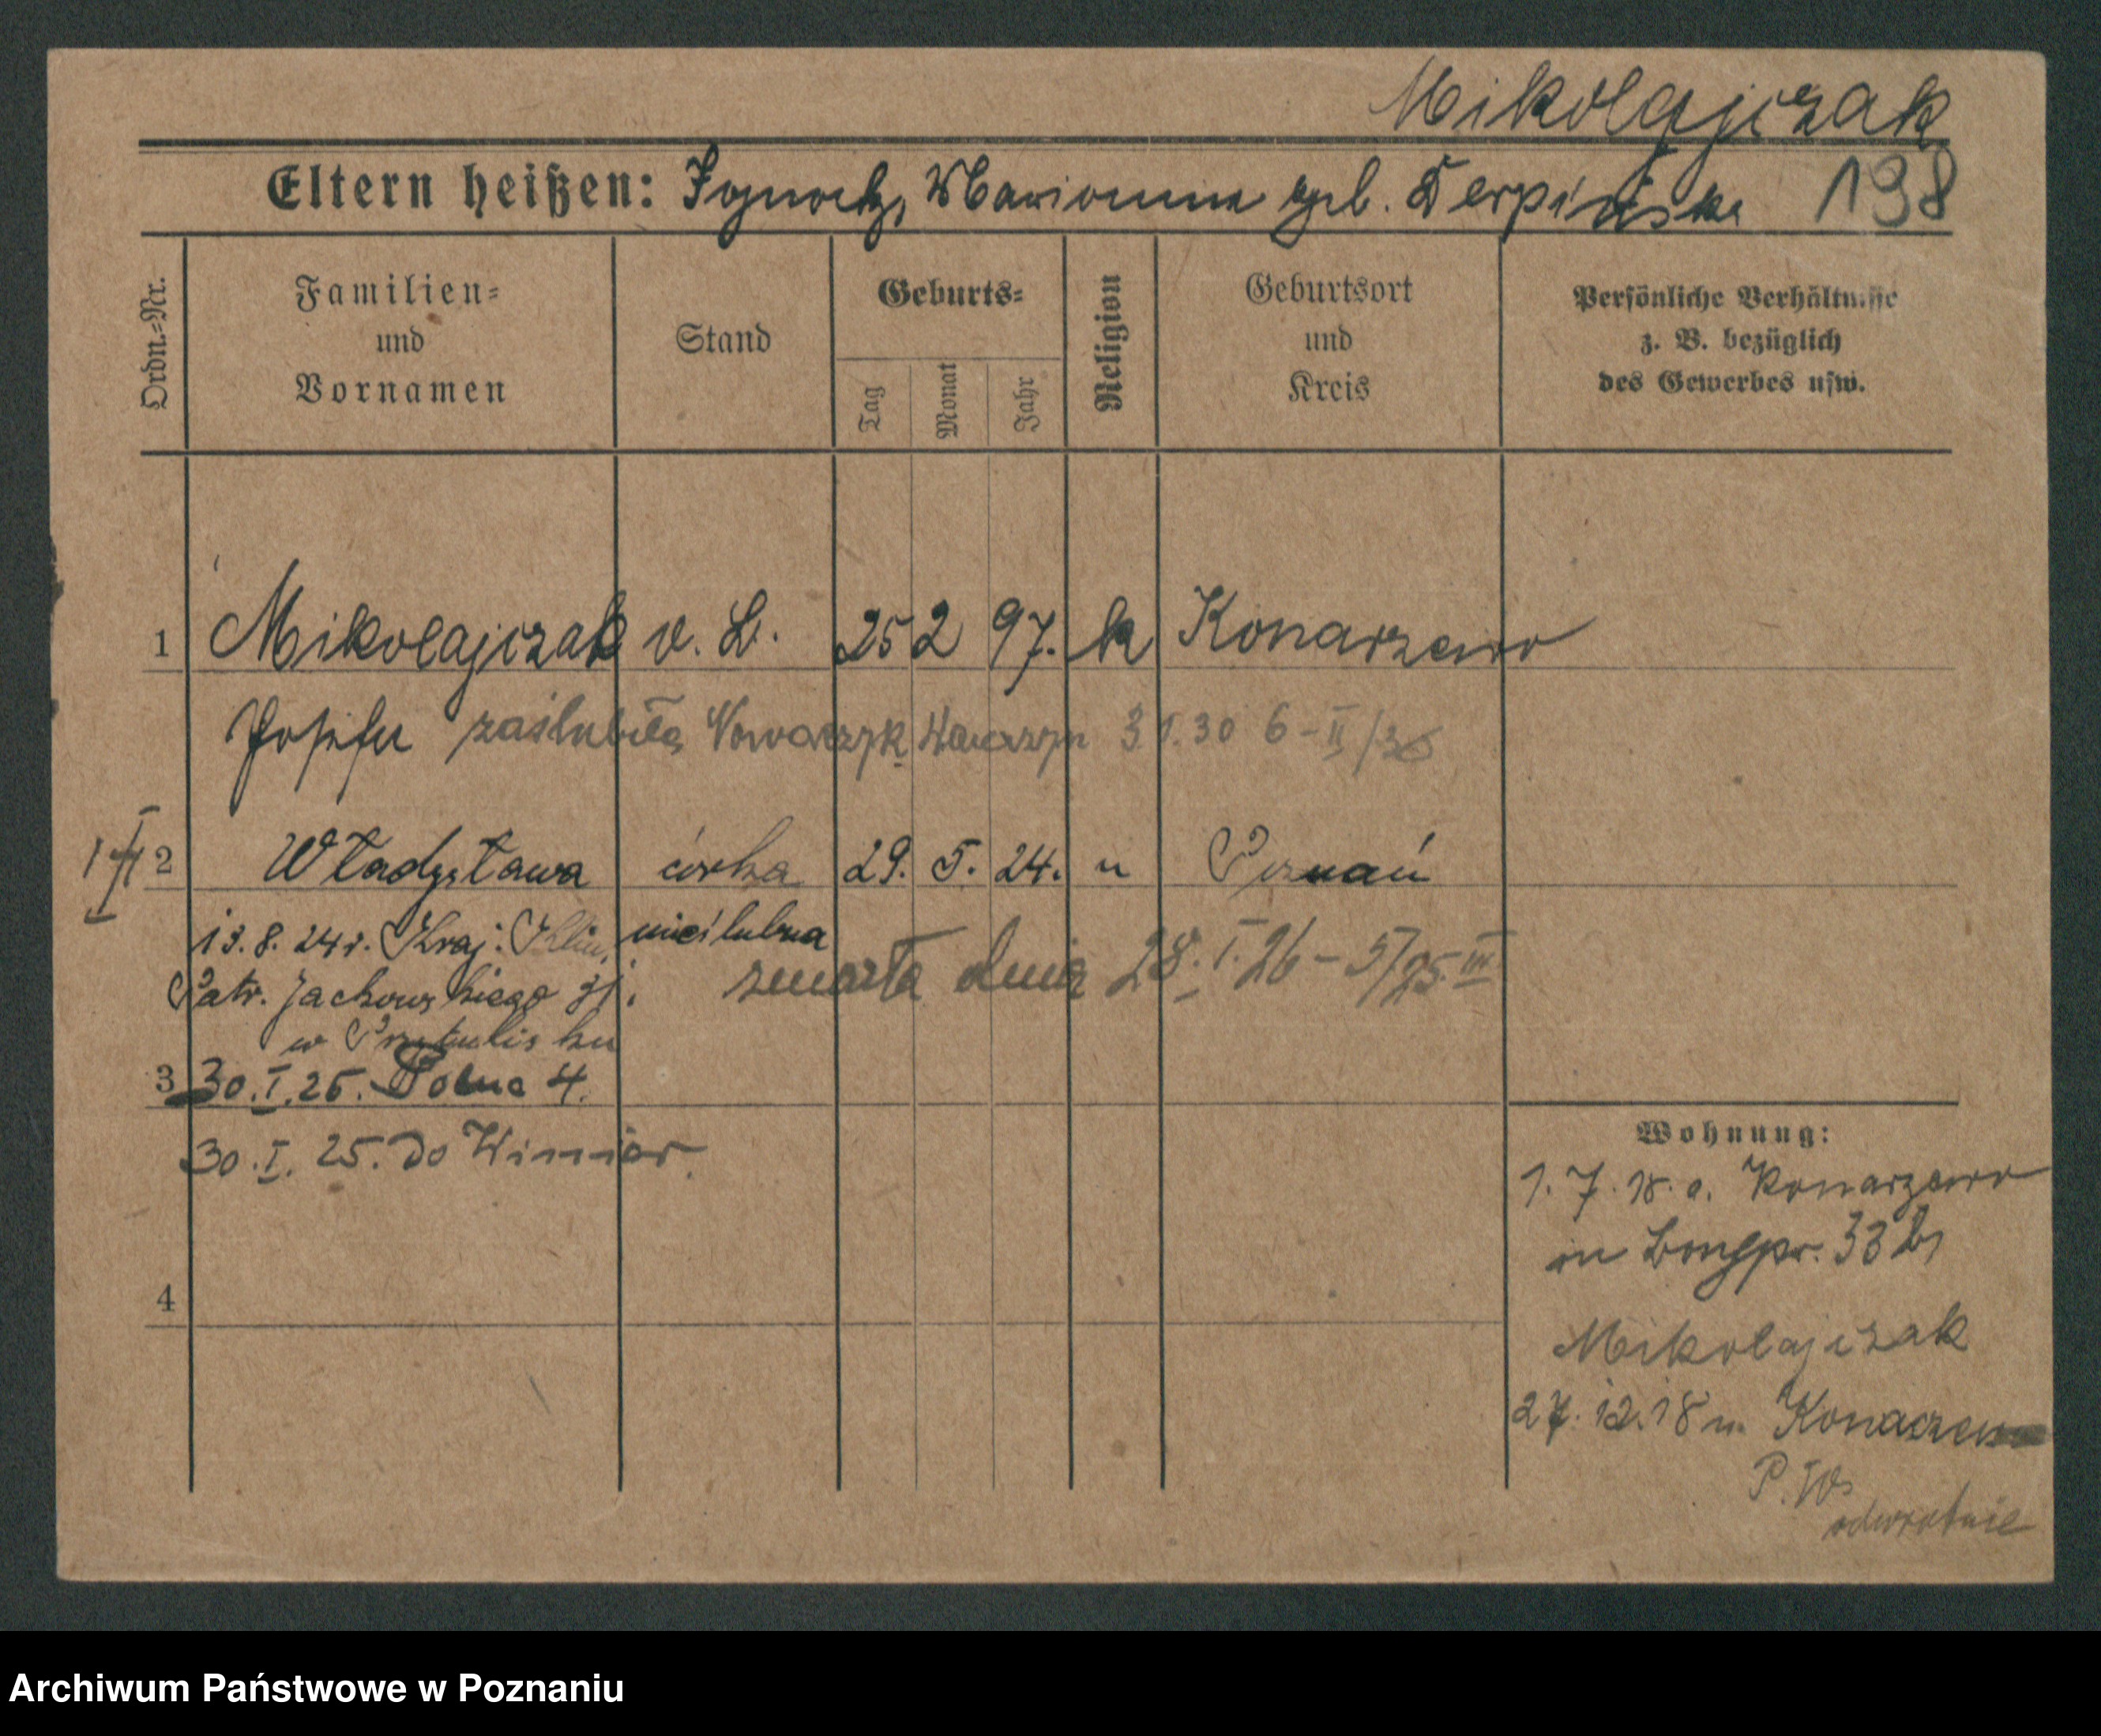 Mikolajczak
Eltern heißen: Ignatz, Marianna geb. Cerpińska 198
Ordn.-Nr.
Familien-
und
Vornamen
Stand
Geburts-
Tag
Monat
Jahr
Religion
Geburtsort
und
Kreis
Persönliche Verhältnisse
z. B. bezüglich
des Gewerbes usw.
1 Mikolajczak v. L. 25 2 97. k Konarzewo
Josefa zaślubiła Nowaczyk Wawrzyn 3.1.30 6-II/36
2 Władysława córka 29. 5. 24. " Poznań
13.8.24 r. Kraj. Klin. nieślubna
zmarła dnia 28.I.26 - 5/25.III
Patr. Jackowskiego
w Przytulisku
3 30.I.25. Polna 4.
30.I.25. do Winiar.
4
Wohnung:
1.7.18. a. Konarzewo
in 33 b,
Mikolajczak
27.12.18 n. Konarzewo
P. W.
odwrotnie
Archiwum Państwowe w Poznaniu